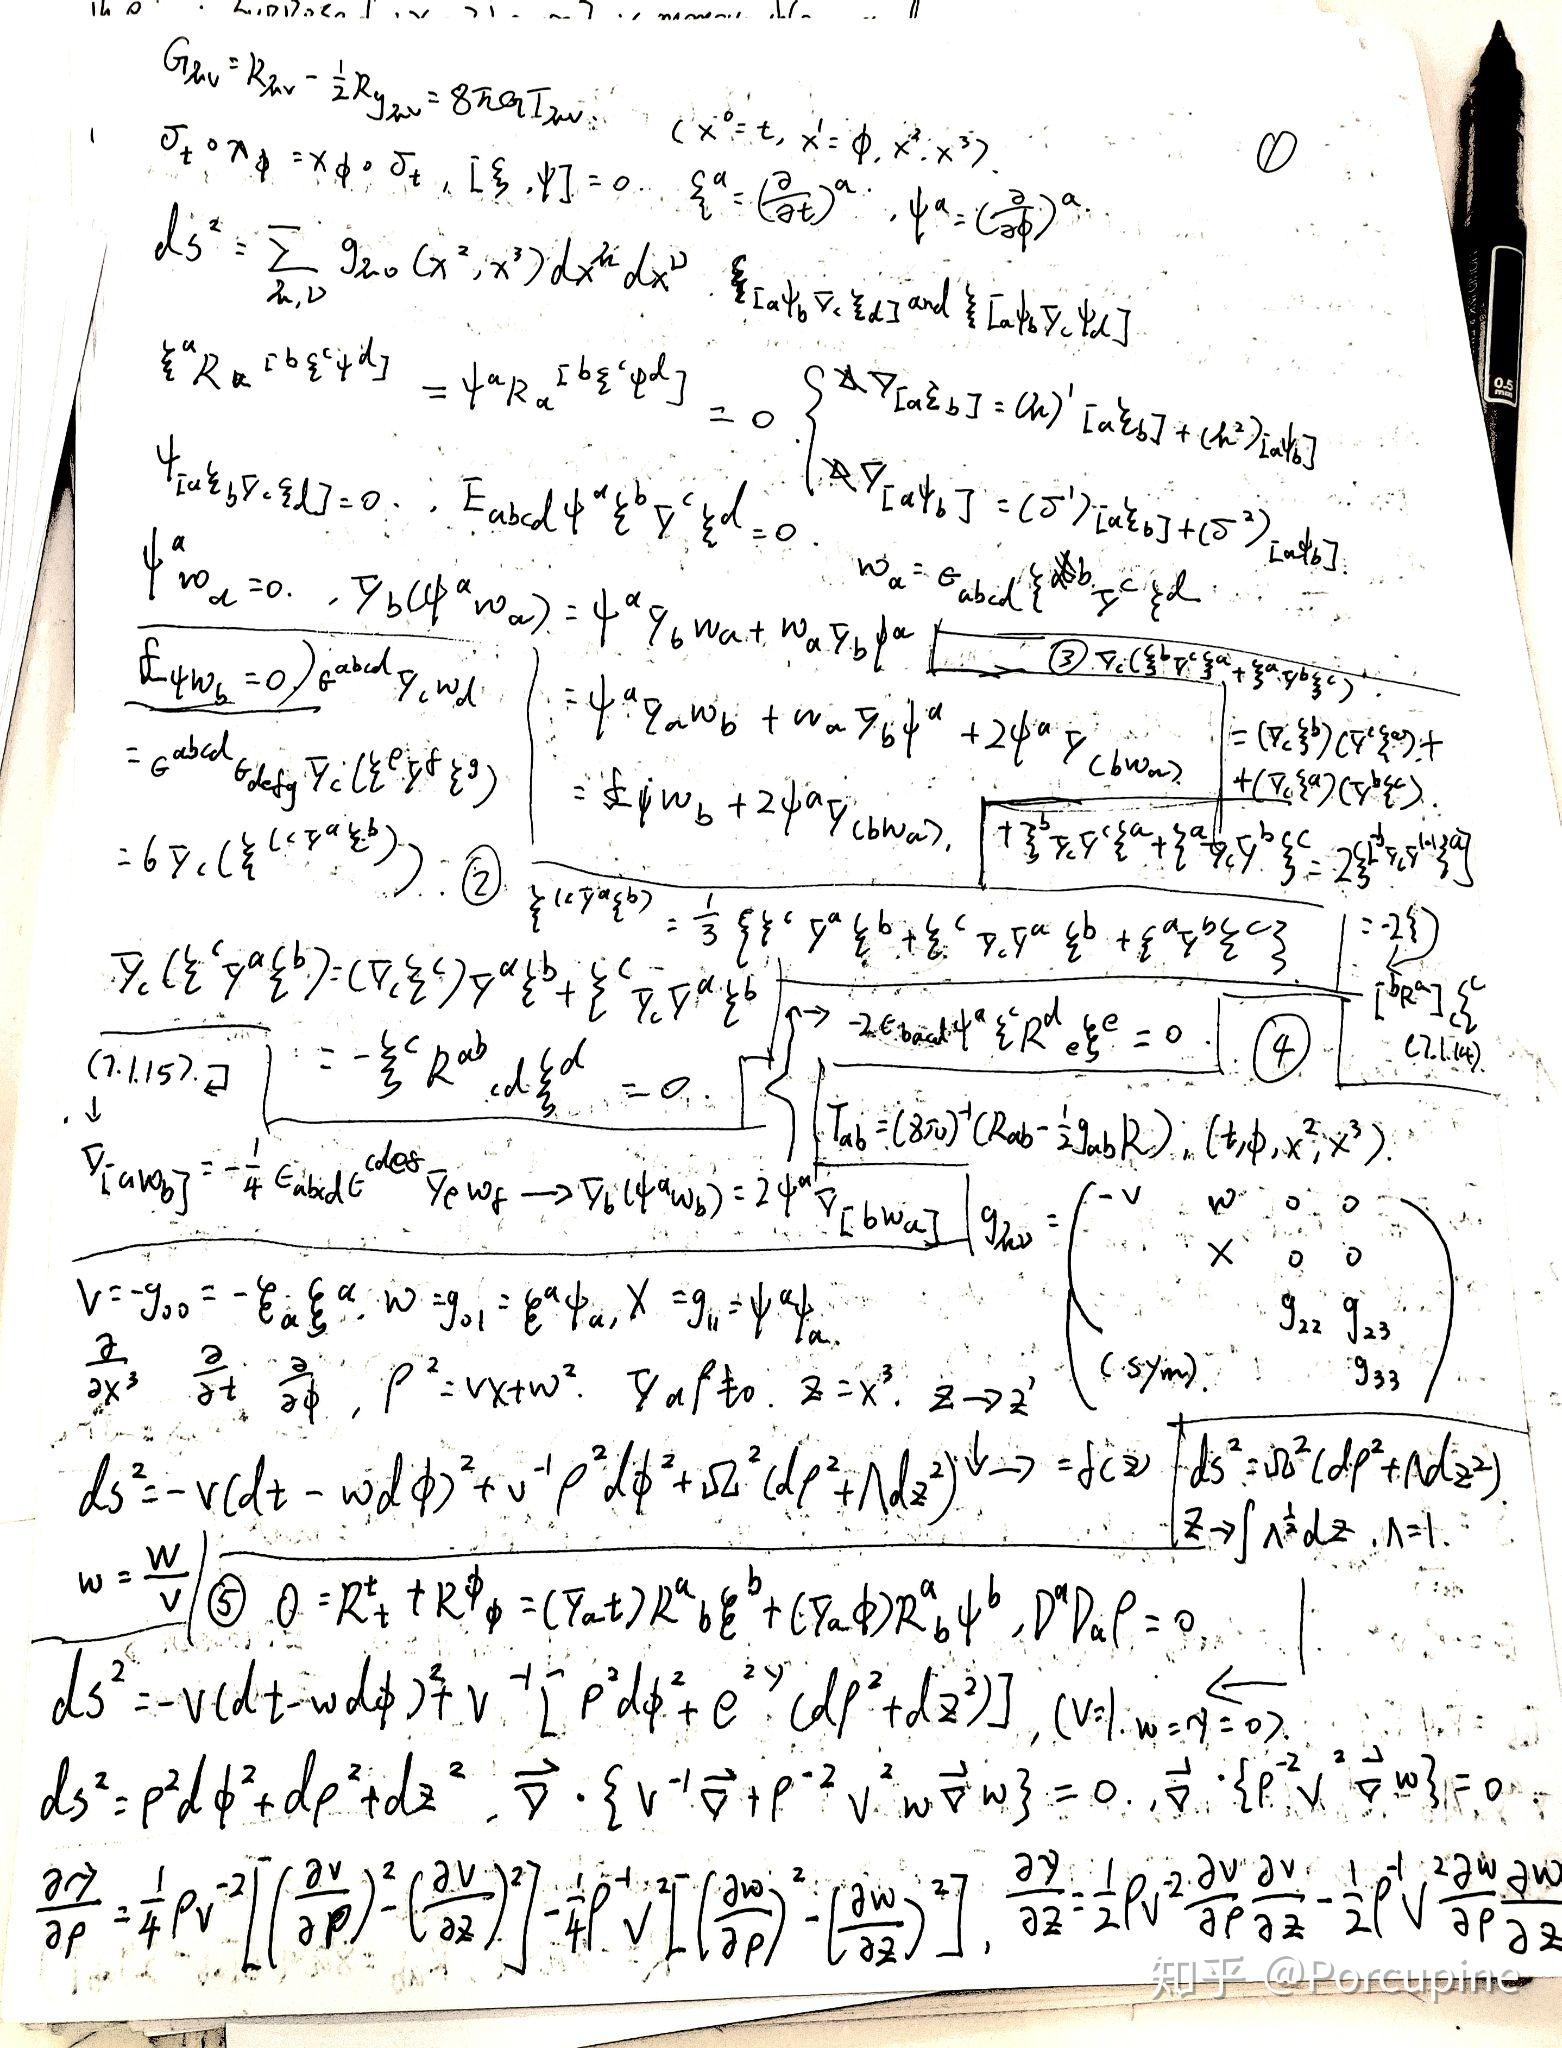 G_{μν} = R_{μν} - \frac{1}{2} R g_{μν} = 8πG T_{μν}.
(x^0 = t, x^1 = φ, x^2, x^3).
①
σ_t ∘ χ_φ = χ_φ ∘ σ_t, [ξ, ψ] = 0. ξ^a = (\frac{∂}{∂t})^a, ψ^a = (\frac{∂}{∂φ})^a.
ds^2 = \sum_{μ,ν} g_{μν}(x^2, x^3) dx^μ dx^ν. ξ_{[a}ψ_b∇_cξ_{d]} and ξ_{[a}ψ_b∇_cψ_{d]}
ξ^a R_a^{[b}ξ^cψ^{d]} = ψ^a R_a^{[b}ξ^cψ^{d]} = 0
{ ∇_{[a}ξ_{b]} = (μ)^1_{[a}ξ_{b]} + (μ^2)_{[a}ψ_{b]}
∇_{[a}ψ_{b]} = (σ^1)_{[a}ξ_{b]} + (σ^2)_{[a}ψ_{b]}.
ψ_{[a}ξ_b∇_cξ_{d]} = 0. , ε_{abcd}ψ^aξ^b∇^cξ^d = 0.
ψ^a w_a = 0. , ∇_b(ψ^a w_a) = ψ^a∇_b w_a + w_a∇_bψ^a
w_a = ε_{abcd}ξ^b∇^cξ^d.
£_ψ w_b = 0) ε^{abcd}∇_c w_d
= ψ^a∇_a w_b + w_a∇_bψ^a + 2ψ^a∇_{(b}w_{a)}
③ ∇_c(ξ^b∇^cξ^a + ξ^a∇^bξ^c)
= (∇_cξ^b)(∇^cξ^a) +
+ (∇_cξ^a)(∇^bξ^c).
+ ξ^b∇_c∇^cξ^a + ξ^a∇_c∇^bξ^c = 2ξ^{[b}∇_c∇^{|c|}ξ^{a]}
= ε^{abcd}ε_{defg}∇_c(ξ^e∇^fξ^g)
= £_ψ w_b + 2ψ^a∇_{(b}w_{a)}.
= 6∇_c(ξ^{(c}∇^aξ^{b)}). ②
ξ^{(c}∇^aξ^{b)} = \frac{1}{3}{ξ^c∇^aξ^b + ξ^c∇_c∇^aξ^b + ξ^a∇^bξ^c}
= -2ξ
^{[b}R^{a]}_cξ^c
(7.1.14)
∇_c(ξ^c∇^aξ^b) = (∇_cξ^c)∇^aξ^b + ξ^c∇_c∇^aξ^b
= -ξ^c R^{ab}_{cd}ξ^d = 0.
→ -2ε_{bacd}ψ^aξ^cR^d_eξ^e = 0. ④
(7.1.15).
↓
T_{ab} = (8π)^{-1}(R_{ab} - \frac{1}{2}g_{ab}R), (t, φ, x^2, x^3).
∇_{[a}w_{b]} = -\frac{1}{4}ε_{abcd}ε^{cdef}∇_e w_f → ∇_b(ψ^a w_b) = 2ψ^a∇_{[b}w_{a]}
g_{μν} = ( -V W 0 0
X 0 0
g_{22} g_{23}
(sym). g_{33} )
V = -g_{00} = -ξ_aξ^a. W = g_{01} = ξ^aψ_a, X = g_{11} = ψ^aψ_a.
\frac{∂}{∂x^3} \frac{∂}{∂t} \frac{∂}{∂φ}, ρ^2 = VX + W^2. ∇_aρ ≠ 0. z = x^3. z → z'
ds^2 = -V(dt - wdφ)^2 + V^{-1}ρ^2dφ^2 + Ω^2(dρ^2 + Λdz^2) ↓ → = f(z)
ds^2 = Ω^2(dρ^2 + Λdz^2).
z → ∫Λ^{\frac{1}{2}}dz, Λ = 1.
w = \frac{W}{V}
⑤ 0 = R^t_t + R^φ_φ = (∇_a t)R^a_bξ^b + (∇_aφ)R^a_bψ^b, D^aD_aρ = 0.
ds^2 = -V(dt - wdφ)^2 + V^{-1}[ρ^2dφ^2 + e^{2γ}(dρ^2 + dz^2)], (V = 1. w = γ = 0). ←
ds^2 = ρ^2dφ^2 + dρ^2 + dz^2, \vec{∇}·{V^{-1}\vec{∇} + ρ^{-2}V^2w\vec{∇}w} = 0., \vec{∇}·{ρ^{-2}V^2\vec{∇}w} = 0.
\frac{∂γ}{∂ρ} = \frac{1}{4}ρV^{-2}[(\frac{∂V}{∂ρ})^2 - (\frac{∂V}{∂z})^2] - \frac{1}{4}ρ^{-1}V^2[(\frac{∂w}{∂ρ})^2 - (\frac{∂w}{∂z})^2], \frac{∂γ}{∂z} = \frac{1}{2}ρV^{-2}\frac{∂V}{∂ρ}\frac{∂V}{∂z} - \frac{1}{2}ρ^{-1}V^2\frac{∂w}{∂ρ}\frac{∂w}{∂z}
知乎 @Porcupine
0.5
mm